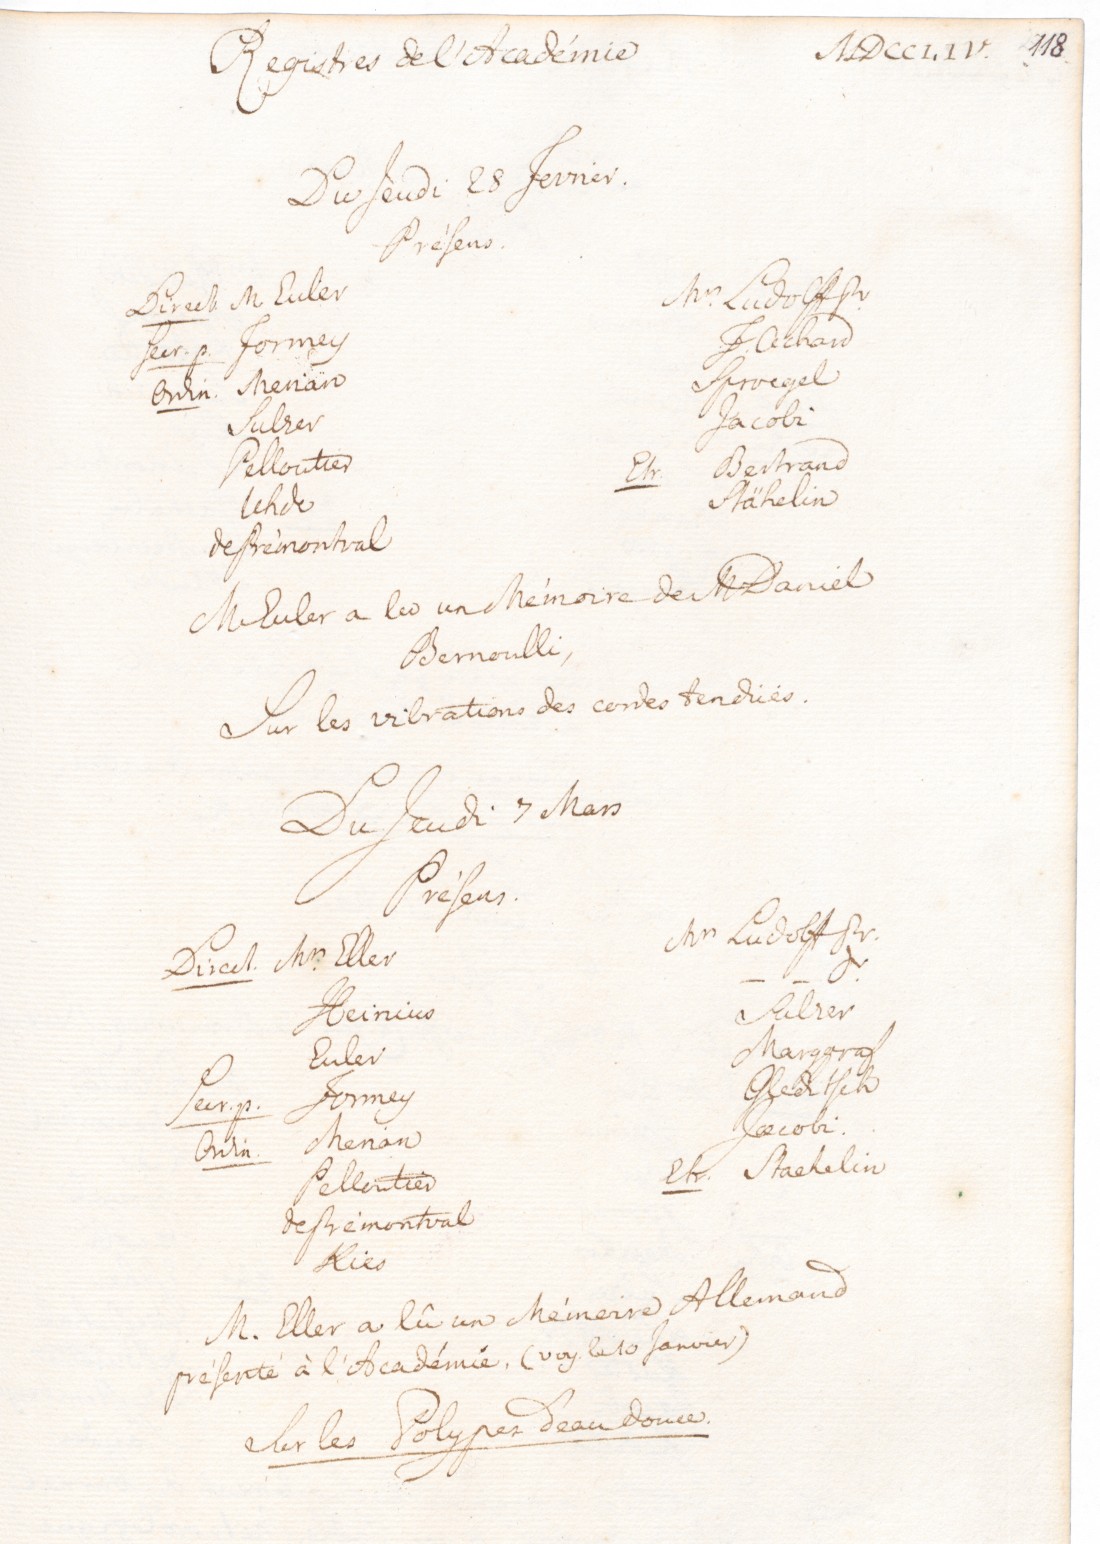 Registres de l'Académie MDCCLIV. 118.
Du Jeudi 28 Fevrier.
Présens.
Direct. M Euler
Secr. p. Formey
Ordin. Merian
Sulzer
Pelloutier
Uhde
de Prémontval
Mrs Ludolff Sr.
F. Achard
Sproegel
Jacobi
Etr. Bertrand
Stähelin
M. Euler a lu un Mémoire de M Daniel
Bernoulli,
Sur les vibrations des cordes tendües.
Du Jeudi 7 Mars
Présens.
Direct. Mrs Eller
Heinius
Euler
Secr. p. Formey
Ordin. Merian
Pelloutier
de Prémontval
Kies
Mrs Ludolff Sr.
_ _ Jr.
Sulzer
Marggraf
Gleditsch
Jacobi.
Etr. Staehelin
M. Eller a lû un Mémoire Allemand
présenté à l'Académie. (voy. le 10 Janvier)
Sur les Polypes d'eau douce.